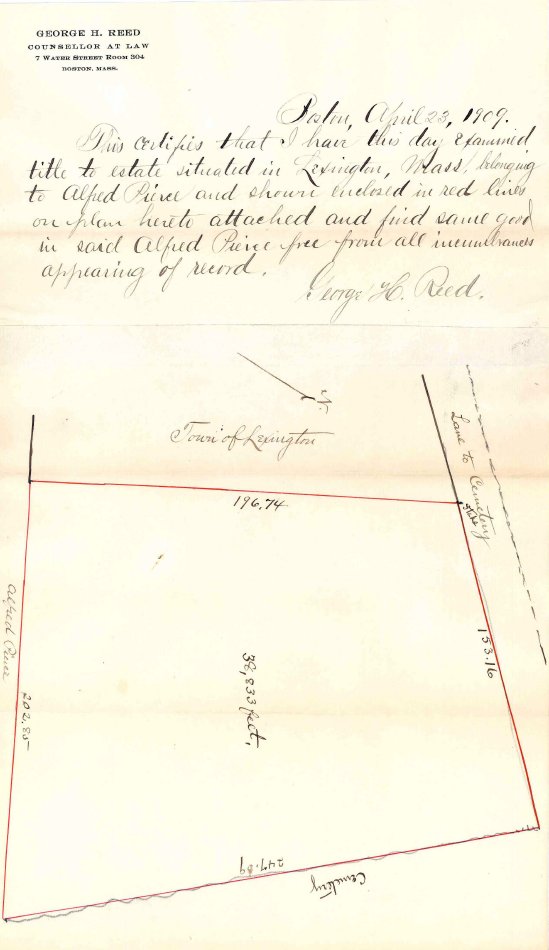 GEORGE H. REED
COUNSELLOR AT LAW
7 WATER STREET ROOM 304
BOSTON, MASS.
Boston, April 23, 1909.
This certifies that I have this day examined
title to estate situated in Lexington, Mass. belonging
to Alfred Pierce and shown enclosed in red lines
on plan hereto attached and find same good
in said Alfred Pierce free from all incumbrances
appearing of record.
George H. Reed.
N.
Town of Lexington
Lane to Cemetery
196.74
Alfred Pierce
153.16
38,833 feet,
202.85
247.89
Cemetery